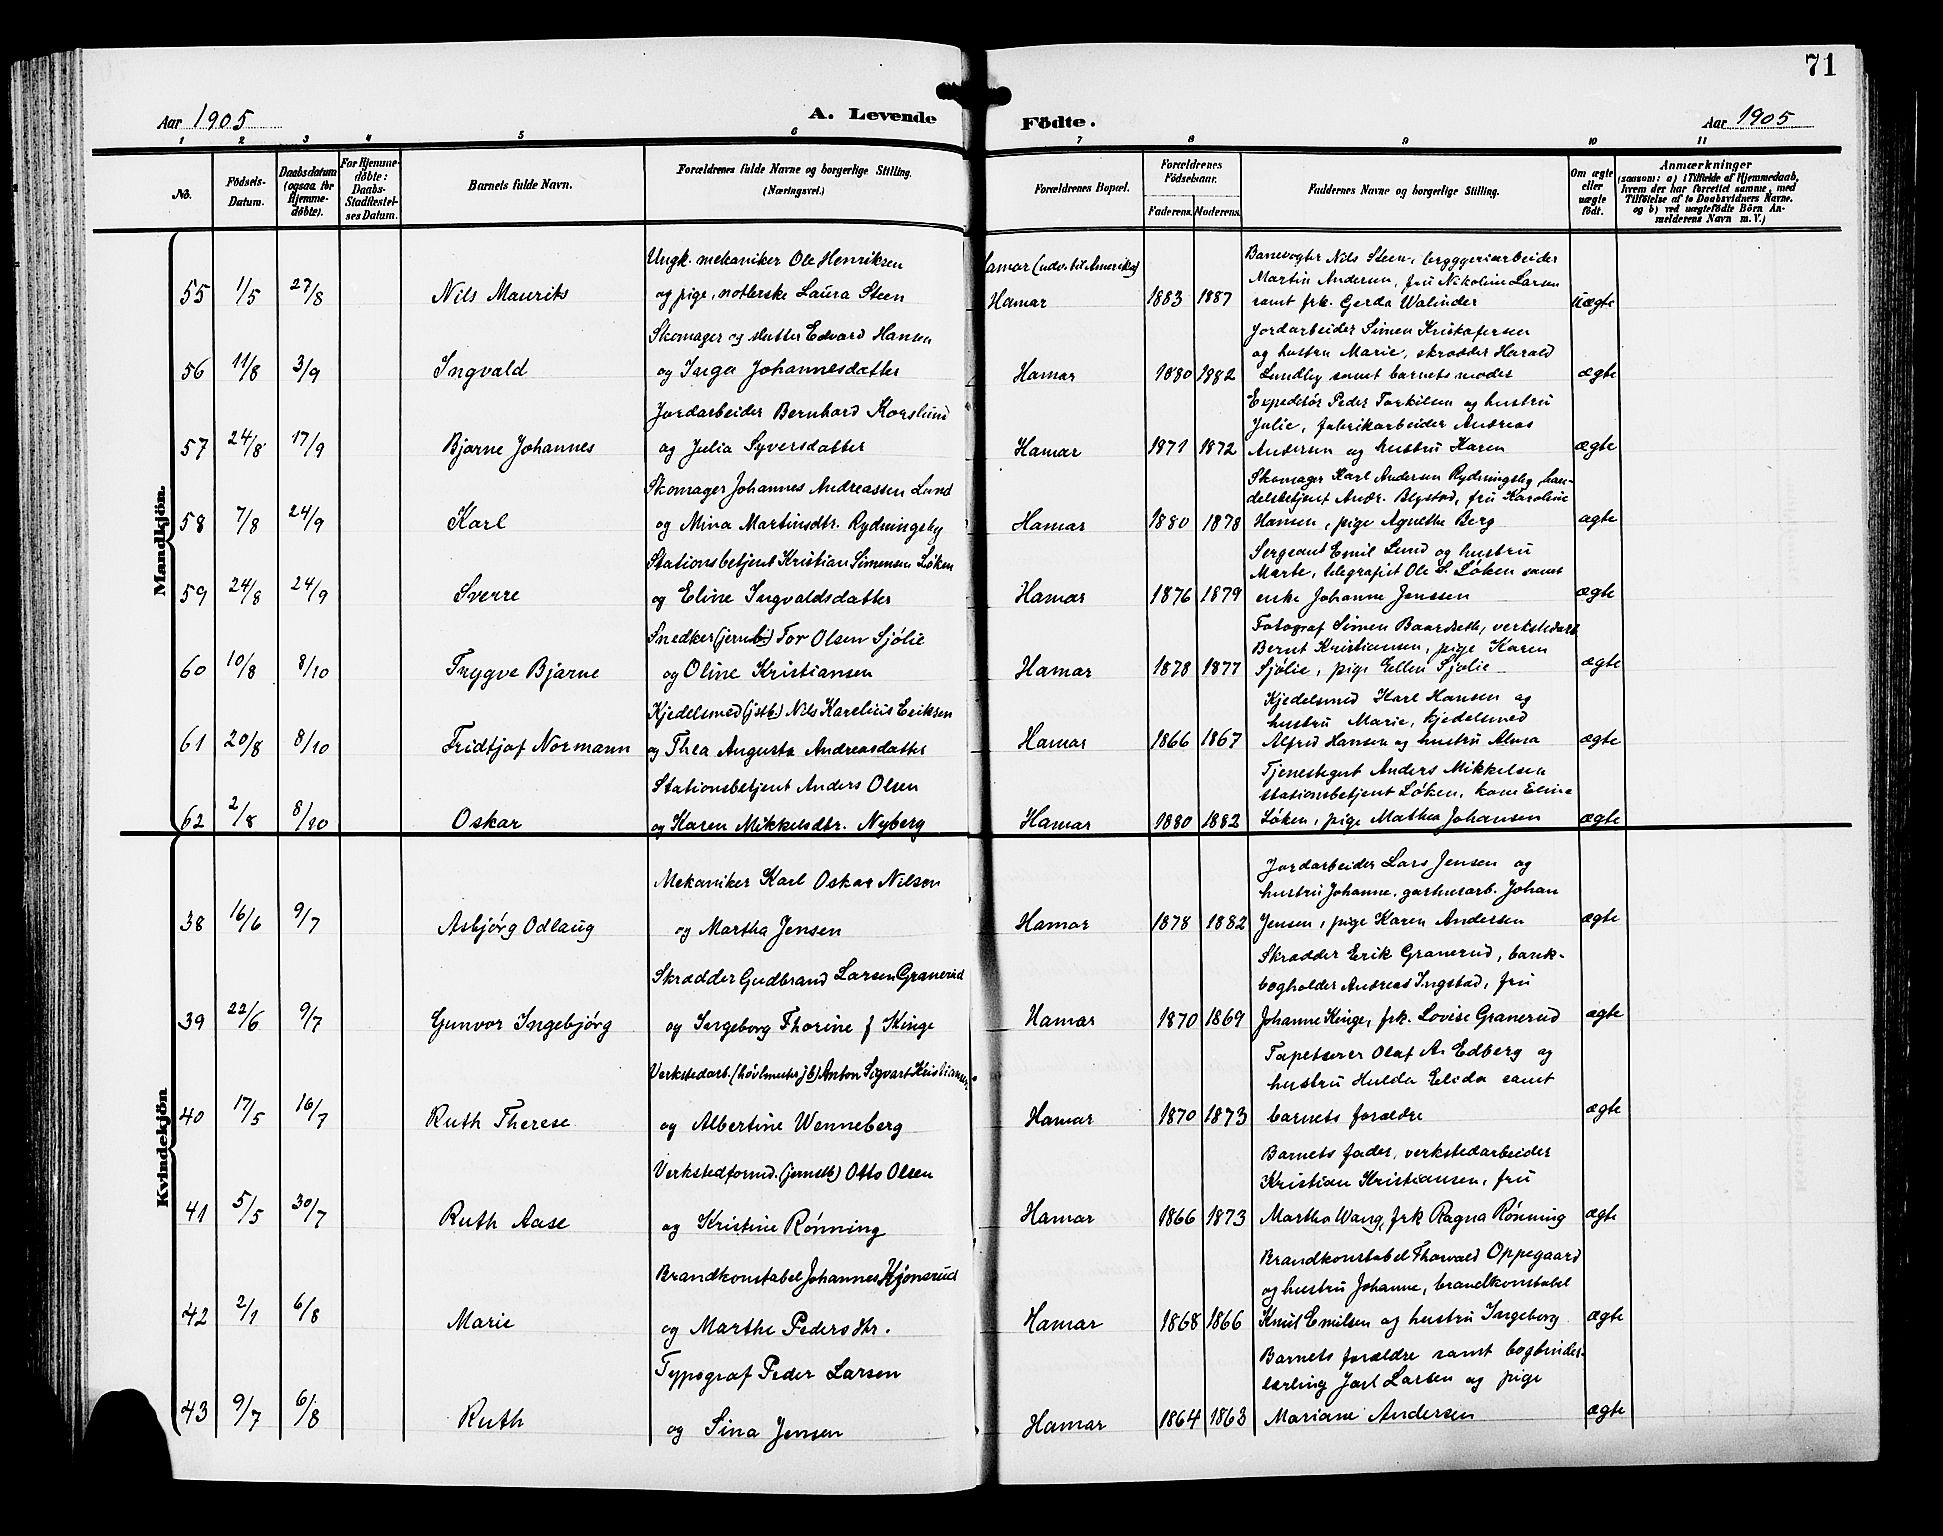 71
Aar 1905 A. Levende Födte. Aar 1905
1 2 3 4 5 6 7 8 9 10 11
No. Födsels-Datum. Daabsdatum (ogsaa for Hjemmedøbte). For Hjemmedøbte: Daabs-Stadfæstelses Datum. Barnets fulde Navn. Forældrenes fulde Navne og borgerlige Stilling. (Næringsvei.) Forældrenes Bopæl. Forældrenes Fødselsaar. Faderens. Moderens. Faddernes Navne og borgerlige Stilling. Om ægte eller uægte født. Anmærkninger (saasom: a) i Tilfælde af Hjemmedaab, hvem der har forrettet samme, med Tilføielse af to Daabsvidners Navne. og b) ved uægtefödte Börn Anmelderens Navn m. V.)
Mandkjön.
Ungk. mekaniker Ole Henriksen Hamar (udv. til Amerika) Banevogter Nils Steen, bryggeriarbeider
Martin Andersen, fru Nikoline Larsen
55 1/5 27/8 Nils Maurits og pige, Laura Steen Hamar 1883 1887 samt frk. Gerda Walinder uægte
Skomager og slutter Edvard Hansen Jordarbeider Simen Kristofersen
og hustru Marie, skrædder Harald
56 11/8 3/9 Ingvald og Inga Johannesdatter Hamar 1880 1882 Lundby samt barnets moder ægte
Jordarbeider Bernhard Korslund Expeditør Peder Torkilsen og hustru
Julie, fabrikarbeider Andreas
57 24/8 17/9 Bjarne Johannes og Julia Syversdatter Hamar 1871 1872 Andersen og hustru Karen ægte
Skomager Johannes Andreassen Lund Skomager Karl Andersen Rydningsby, han-
delsbetjent Andr. Blystad, fru Karoline
58 7/8 24/9 Karl og Mina Martinsdtr. Rydningsby Hamar 1880 1878 Hansen, pige Agnethe Berg ægte
Stationsbetjent Kristian Simensen Løken Sergeant Emil Lund og hustru
Marte, telegrafist Ole S. Løken samt
59 24/8 24/9 Sverre og Eline Ingvaldsdatter Hamar 1876 1879 enke Johanne Jenssen ægte
Snedker (jernb.) Tor Olsen Sjølie Fotograf Simen Baardseth, verkstedarb.
Bernt Kristiansen, pige Karen
60 10/8 8/10 Trygve Bjarne og Oline Kristiansen Hamar 1878 1877 Sjølie, pige Ellen Sjølie ægte
Kjedelsmed (jstb.) Nils Karelius Eriksen Kjedelsmed Karl Hansen og
hustru Marie, kjedelsmed
61 20/8 8/10 Fridtjof Normann og Thea Augusta Andreasdatter Hamar 1866 1867 Alfred Hansen og hustru Alma ægte
Stationsbetjent Anders Olsen Tjenestegut Anders Mikkelsen
stationsbetjent Løken, kone Eline
62 2/8 8/10 Oskar og Karen Mikkelsdtr. Nyberg Hamar 1880 1882 Løken, pige Mathea Johansen ægte
Kvindekjön
Mekaniker Karl Oskar Nilsen Jordarbeider Lars Jensen og
hustru Johanne, gartnerarb. Johan
38 16/6 9/7 Asbjørg Odlaug og Martha Jensen Hamar 1878 1882 Jensen, pige Karen Andersen ægte
Skrædder Gudbrand Larsen Granerud Skrædder Erik Granerud, bank-
bogholder Andreas Ingstad, fru
39 22/6 9/7 Gunvor Ingebjørg og Ingeborg Thorine f Kinge Hamar 1870 1869 Johanne Kinge, frk. Lovise Granerud ægte
Verkstedarb. (høvlmester jb) Anton Sigvart Kristiansen Tapetserer Olaf A. Edberg og
hustru Hulda Elida samt
40 17/5 16/7 Ruth Therese og Albertine Wenneberg Hamar 1870 1873 barnets forældre ægte
Verkstedformd. (jernstb) Otto Olsen Barnets fader, verkstedarbeider
Kristian Kristiansen, fru
41 5/5 30/7 Ruth Aase og Kristine Rønning Hamar 1866 1873 Martha Wang, frk Ragna Rønning ægte
Brandkonstabel Johannes Kjonerud Brandkonstabel Thorvald Oppegaard
og hustru Johanne, brandkonstabel
42 2/1 6/8 Marie og Marthe Pedersdtr. Hamar 1868 1866 Knut Emilsen og hustru Ingeborg ægte
Typograf Peder Larsen Barnets forældre samt bogbinder-
lærling Jarl Larsen og pige
43 9/7 6/8 Ruth og Sina Jensen Hamar 1864 1863 Mariane Andersen ægte